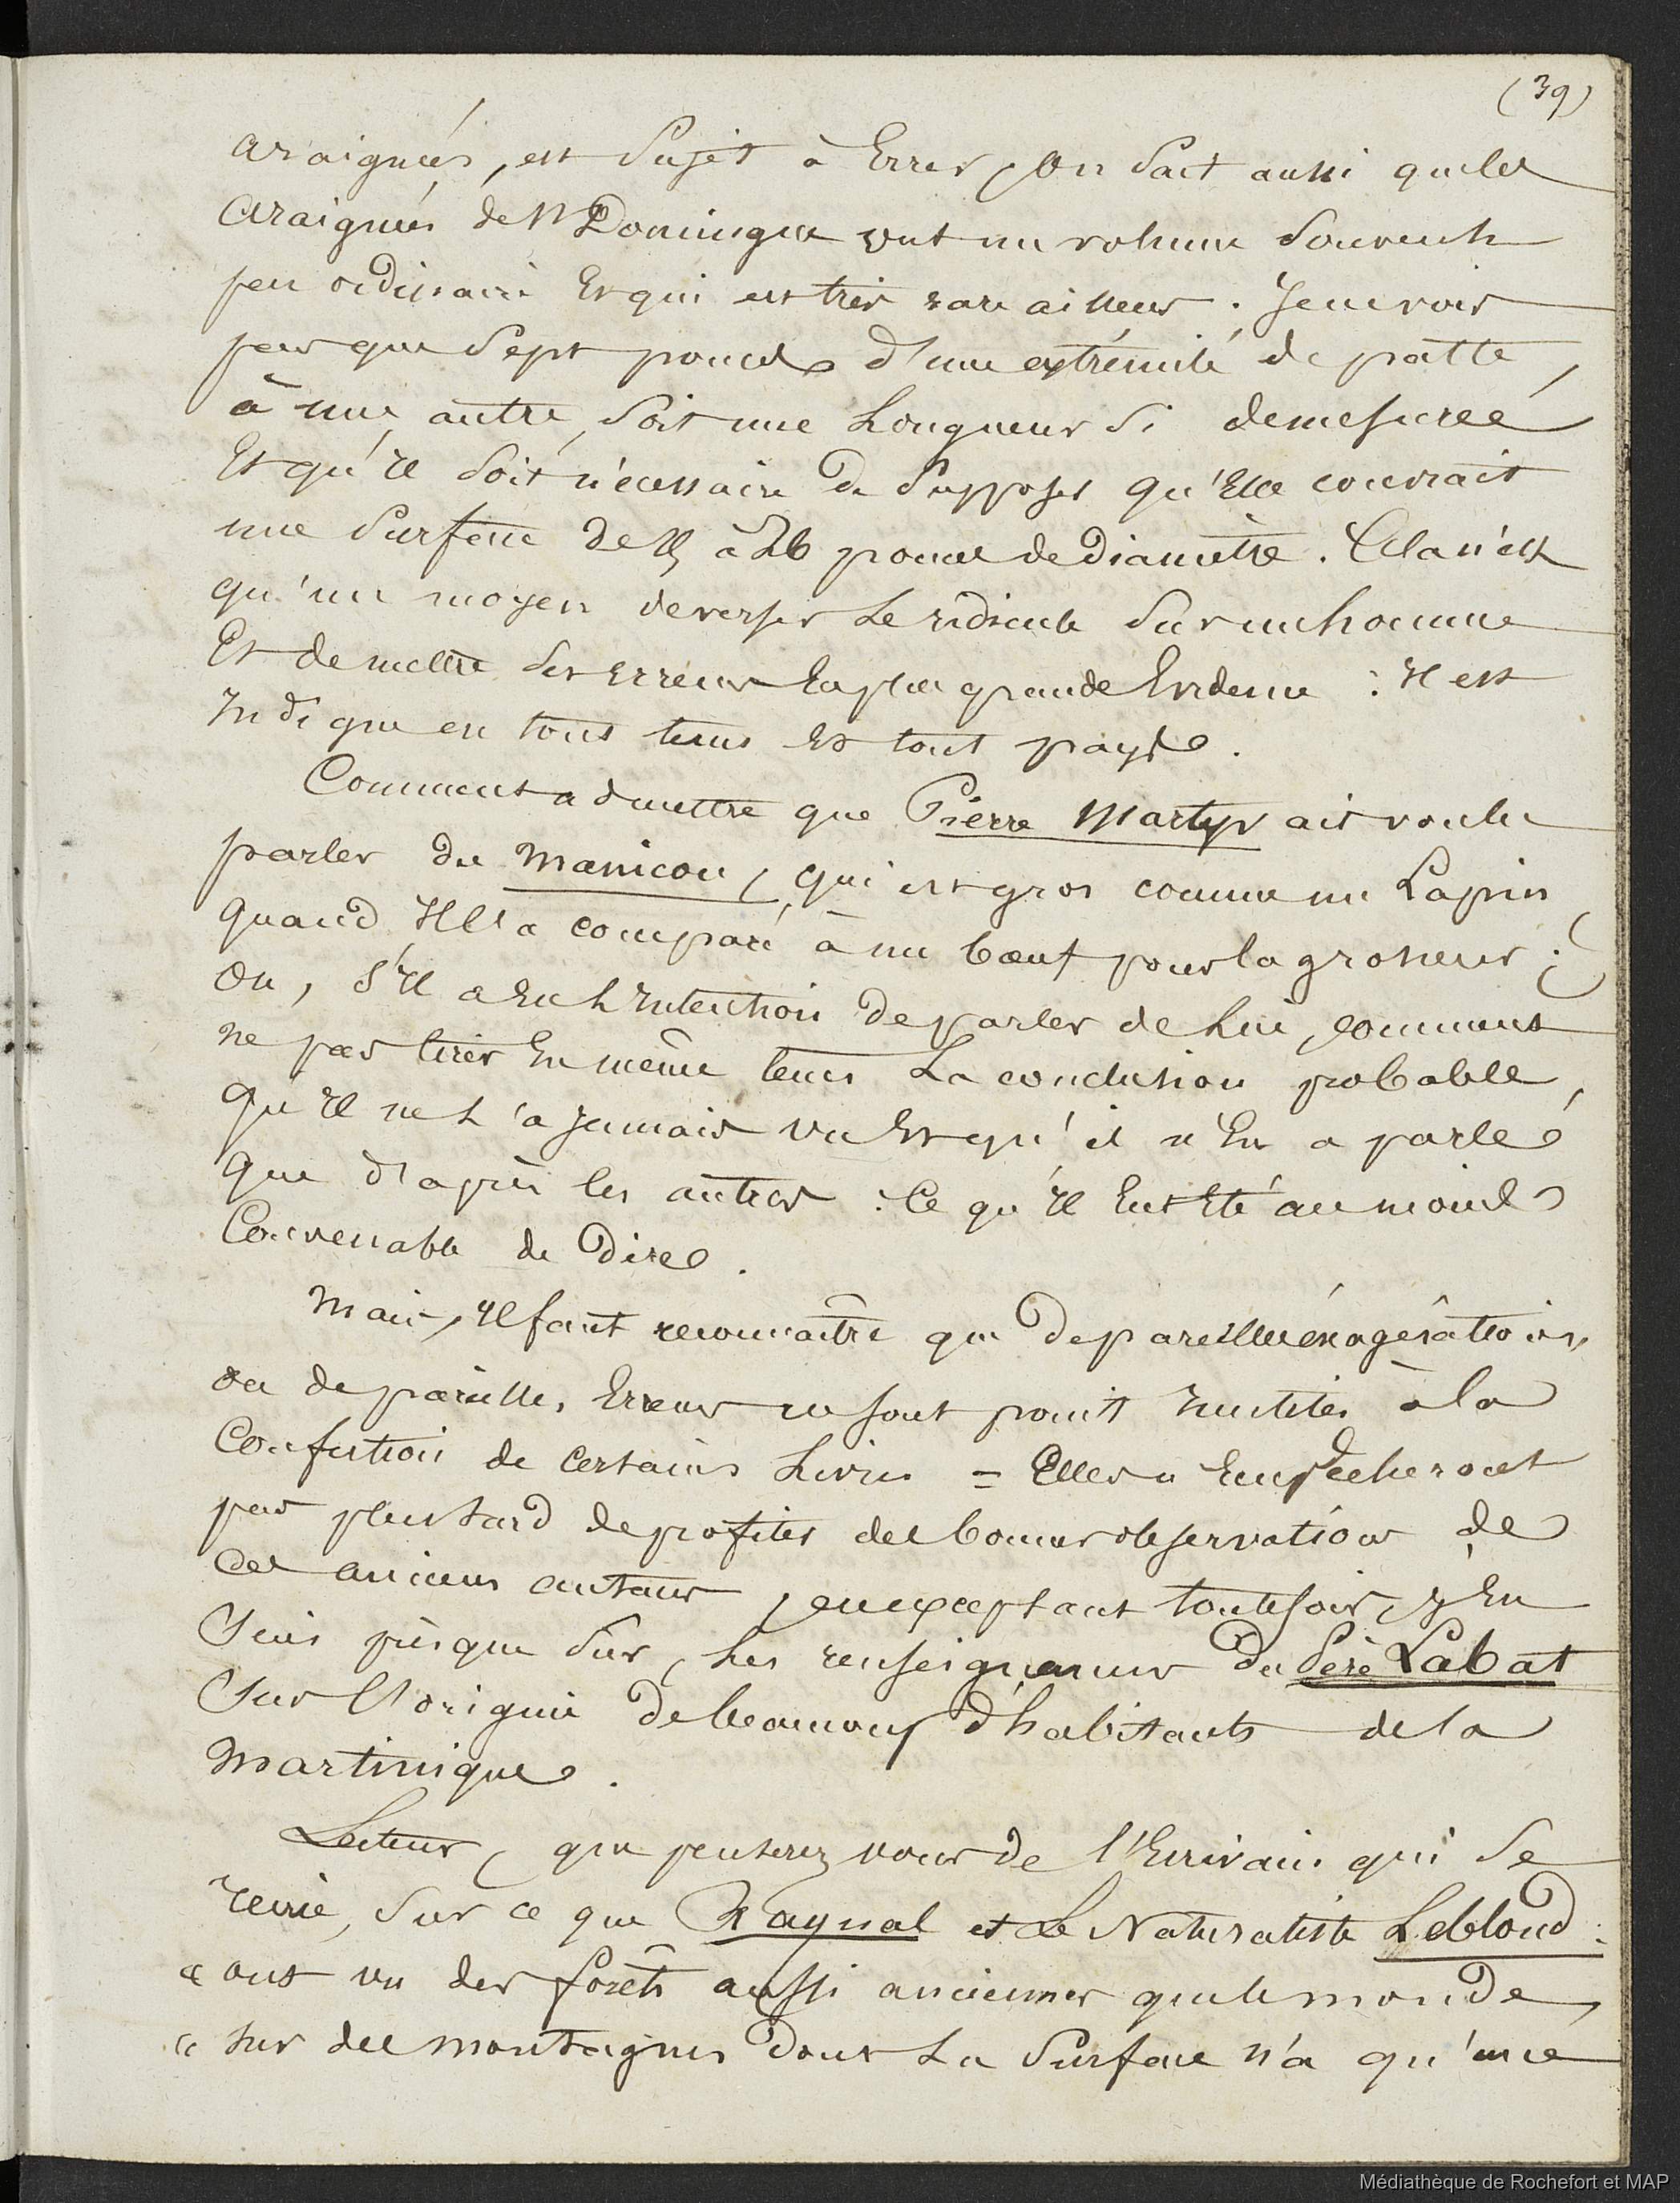 (39)
araignées, est sujet à Errer, On sait aussi que les
Araignées de St Domingue ont un volume souvent
peu ordinaire Et qui est très rare ailleurs. Je ne vois
pas que sept pouces d'une extrémité de patte,
à une autre, soit une Longueur si demesurée
Et qu'Il soit nécessaire de supposer qu'Elle couvrait
une surface de à 26 pouces de Diamètre. Cela n'est
qu'un moyen de verser Le ridicule sur un homme
Et de mettre ses Erreurs En plus grande Evidence : Il est
Indigne en tous tems Et tout pays.
Comment admettre que Pierre Martyr ait voulu
parler du Manicou, qui est gros comme un Lapin,
quand Il l'a comparé à un bœuf pour la grosseur ;
Ou, s'Il a Eu L'Intention de parler de Lui, comment
ne pas tirer En même tems La conclusion probable,
qu'Il ne L'a Jamais vu Et qu'il n'En a parlé
que d'après les autres : Ce qu'Il Eut Eté au moins
Convenable de Dire.
Mais, Il faut reconnaître que De pareilles éxagérâtions,
ou de pareilles Erreurs ne sont point Inutiles à la
Confection de certains Livres = Elles n'Empêcheront
pas plus tard de profiter des bonnes observations de
ces anciens auteurs, en exceptant toutefois, J'En
Suis presque Sûr, Les renseignemens du Père Labat
Sur l'origine de beaucoup d'habitants de la
Martinique.
Lecteur, que penserez vous de l'Ecrivain qui se
recrie, sur ce que Raynal et Le Naturaliste Leblond :
« ont vu des forêts aussi anciennes que le monde,
« sur des montagnes dont La Surface n'a qu'une
Médiathèque de Rochefort et MAP